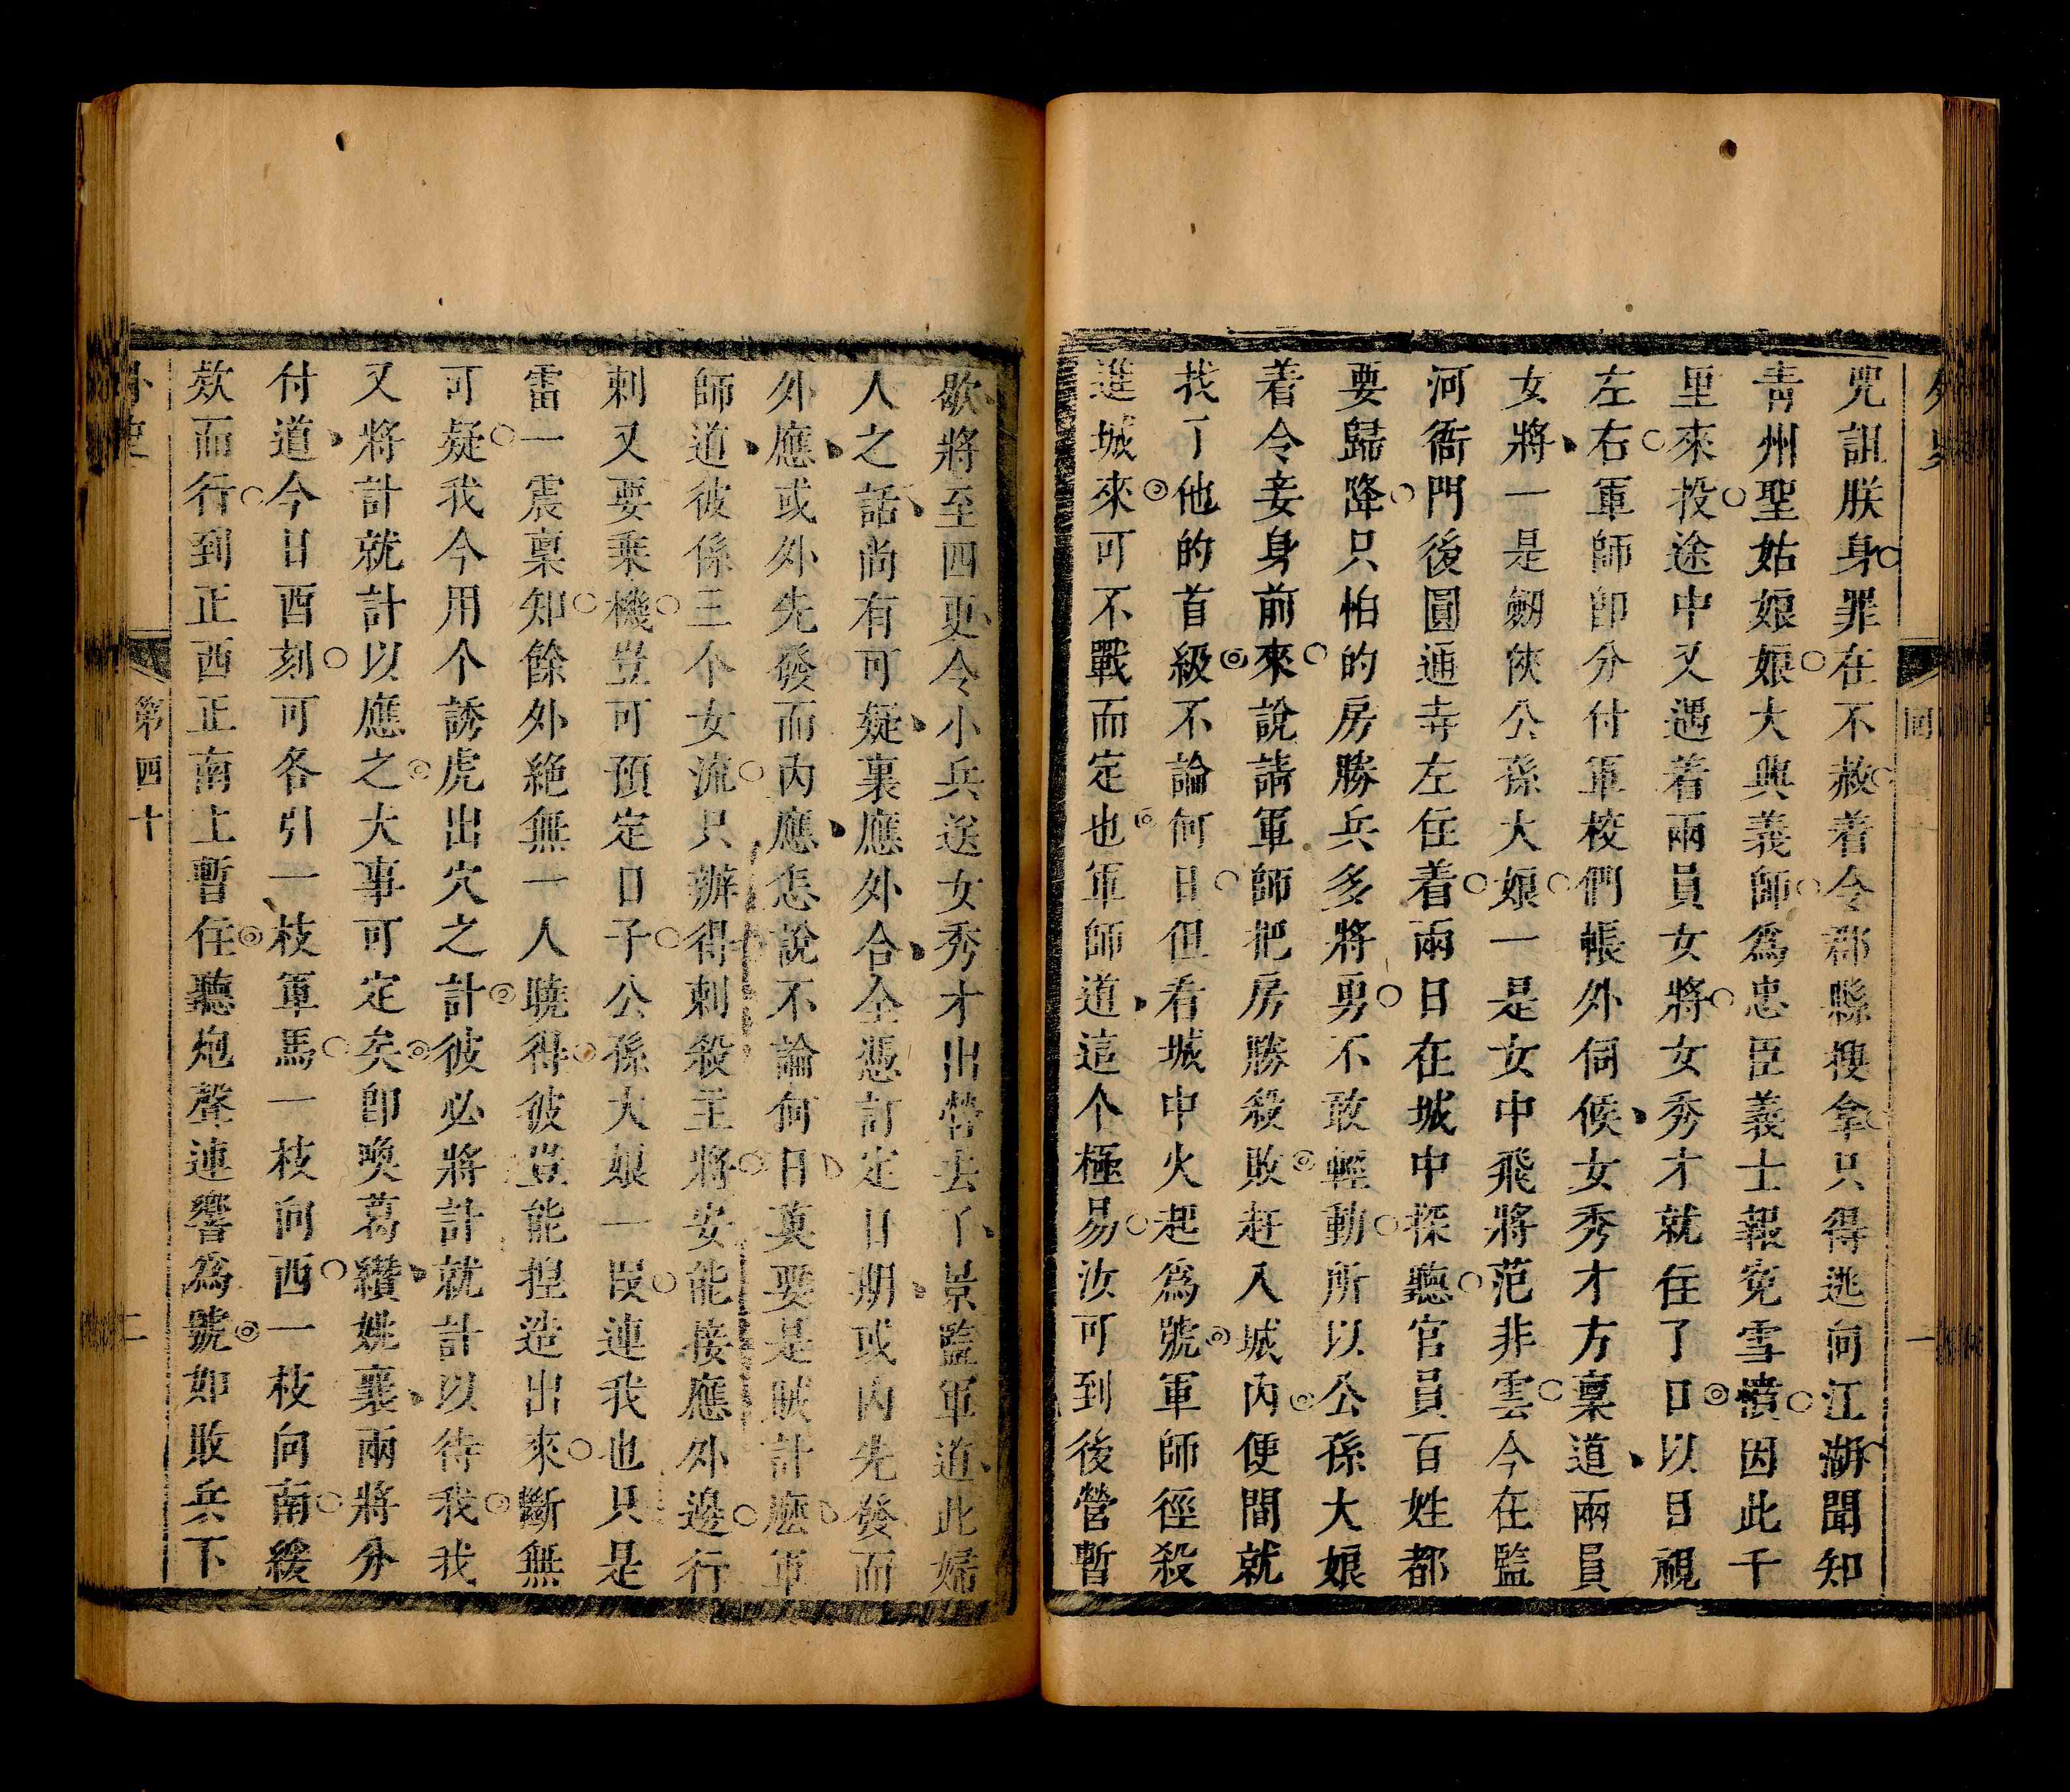 外史
回
一
兕詛朕身罪在不赦着令郡縣搜拿只得逃向江湖聞知
青州聖姑娘娘大興義師爲忠臣義士報寃雪憤因此千
里來投途中又遇着兩員女將女秀才就住了口以目視
左右軍師即分付軍校們帳外伺候女秀才方稟道兩員
女將一是劒俠公孫大娘一是女中飛將范非雲今在監
河衙門後圓通寺左住着兩日在城中探聽官員百姓都
要歸降只怕的房勝兵多將勇不敢輕動所以公孫大娘
着令妾身前來說請軍師把房勝殺敗赶入城內便間就
找了他的首級不論何日但看城中火起爲號軍師徑殺
進城來可不戰而定也軍師道這个極易汝可到後營暫
歇將至四更令小兵送女秀才出營去了景監軍道此婦
人之話尚有可疑裏應外合全憑訂定日期或內先發而
外應或外先發而內應怎說不論何日莫要是賊計麽軍
師道彼係三个女流只辦得刺殺主將安能接應外邊行
刺又要乘機豈可預定日子公孫大娘一誤連我也只是
雷一震稟知餘外絶無一人曉得彼豈能揑造出來斷無
可疑我今用个誘虎出穴之計彼必將計就計以待我我
又將計就計以應之大事可定矣即喚葛纘姚襄兩將分
付道今日酉刻可各引一枝軍馬一枝向西一枝向南緩
款而行到正西正南上暫住聽炮聲連響爲號如敗兵下
外史
第四十
二